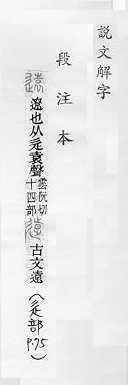 說文解字
段注本
遠 遼也从辵袁聲 雲阮切 十四部 古文遠(辵部 P.75)